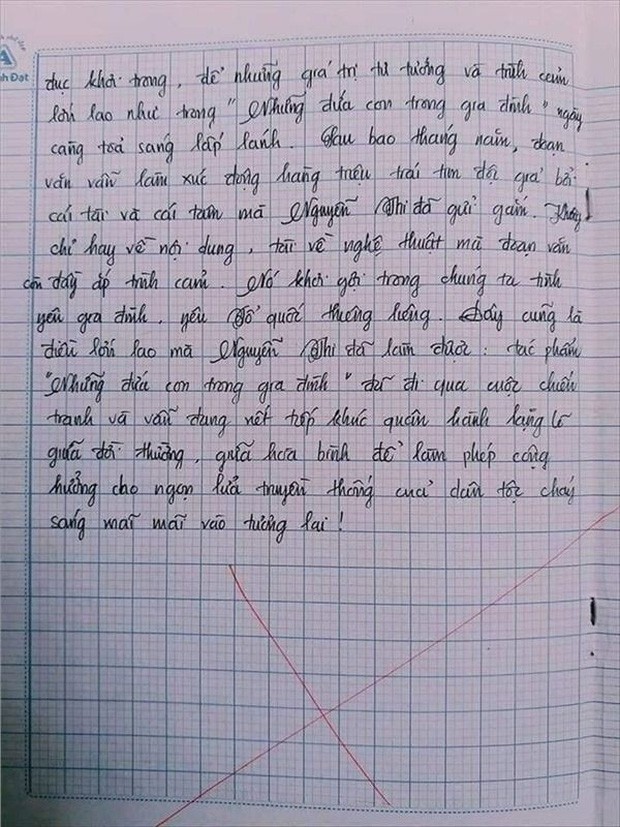 nh Đạt
dục khơi trong, để những giá trị tư tưởng và tình cảm
lớn lao như trong "Những đứa con trong gia đình" ngày
càng toả sáng lấp lánh. Sau bao tháng năm, đoạn
văn vẫn làm xúc động hàng triệu trái tim độc giả bởi
cái tài và cái tâm mà Nguyễn Thi đã gửi gắm. Không
chỉ hay về nội dung, tài về nghệ thuật mà đoạn văn
còn đầy ắp tình cảm. Nó khơi gợi trong chúng ta tình
yêu gia đình, yêu Tổ quốc thương lương. Đây cũng là
điều lớn lao mà Nguyễn Thi đã làm được: tác phẩm
"Những đứa con trong gia đình" đã đi qua cuộc chiến
tranh và vẫn đang nối tiếp khúc quân hành lặng lẽ
giữa đời thường, giữa hoà bình để làm phép cộng
hưởng cho ngọn lửa truyền thống của dân tộc cháy
sáng mãi mãi vào tương lai!